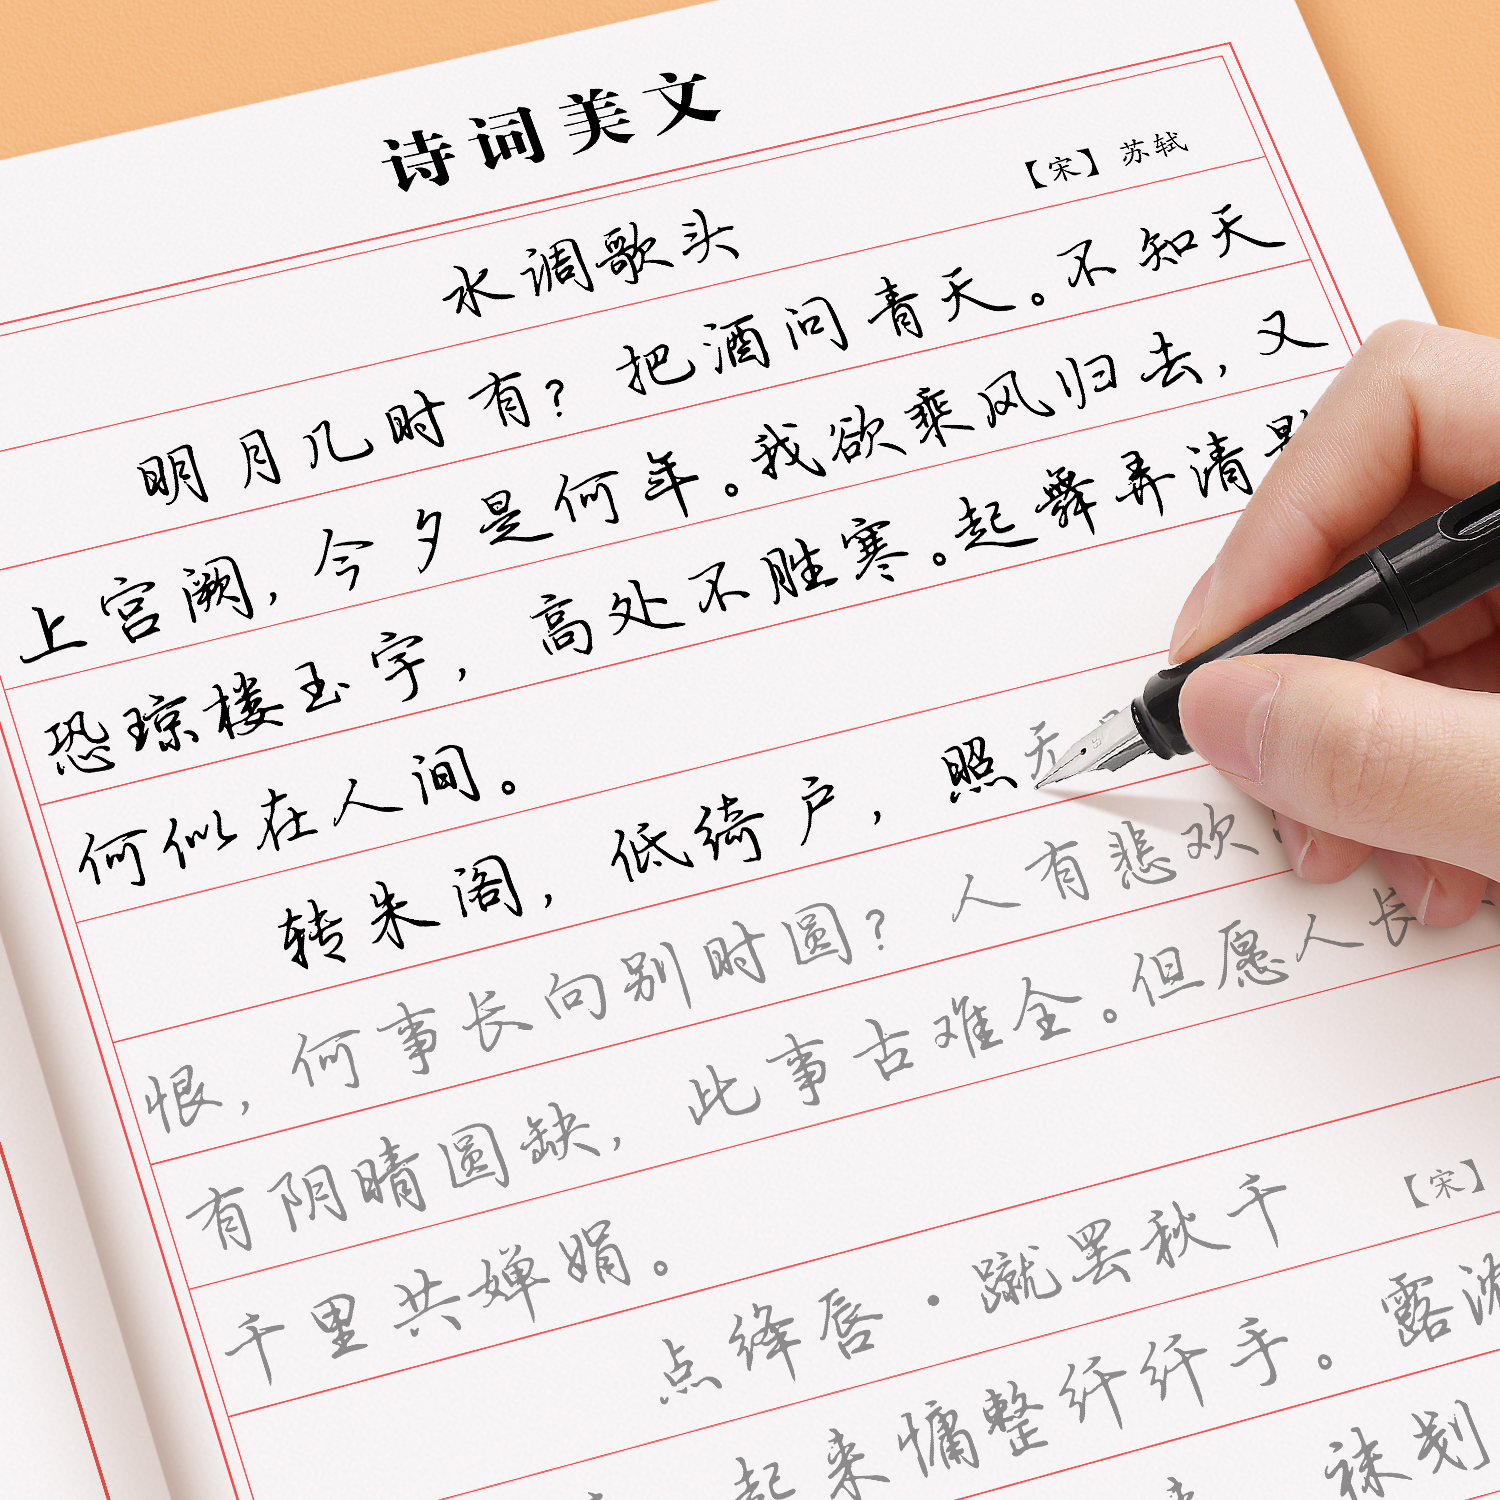 诗词美文
【宋】苏轼
水调歌头
明月几时有？把酒问青天。不知天
上宫阙，今夕是何年。我欲乘风归去，又
恐琼楼玉宇，高处不胜寒。起舞弄清
何似在人间。
转朱阁，低绮户，照无
恨，何事长向别时圆？人有悲欢
有阴晴圆缺，此事古难全。但愿人长
千里共婵娟。
【宋】
点绛唇·蹴罢秋千
起来慵整纤纤手。露浓
袜刬